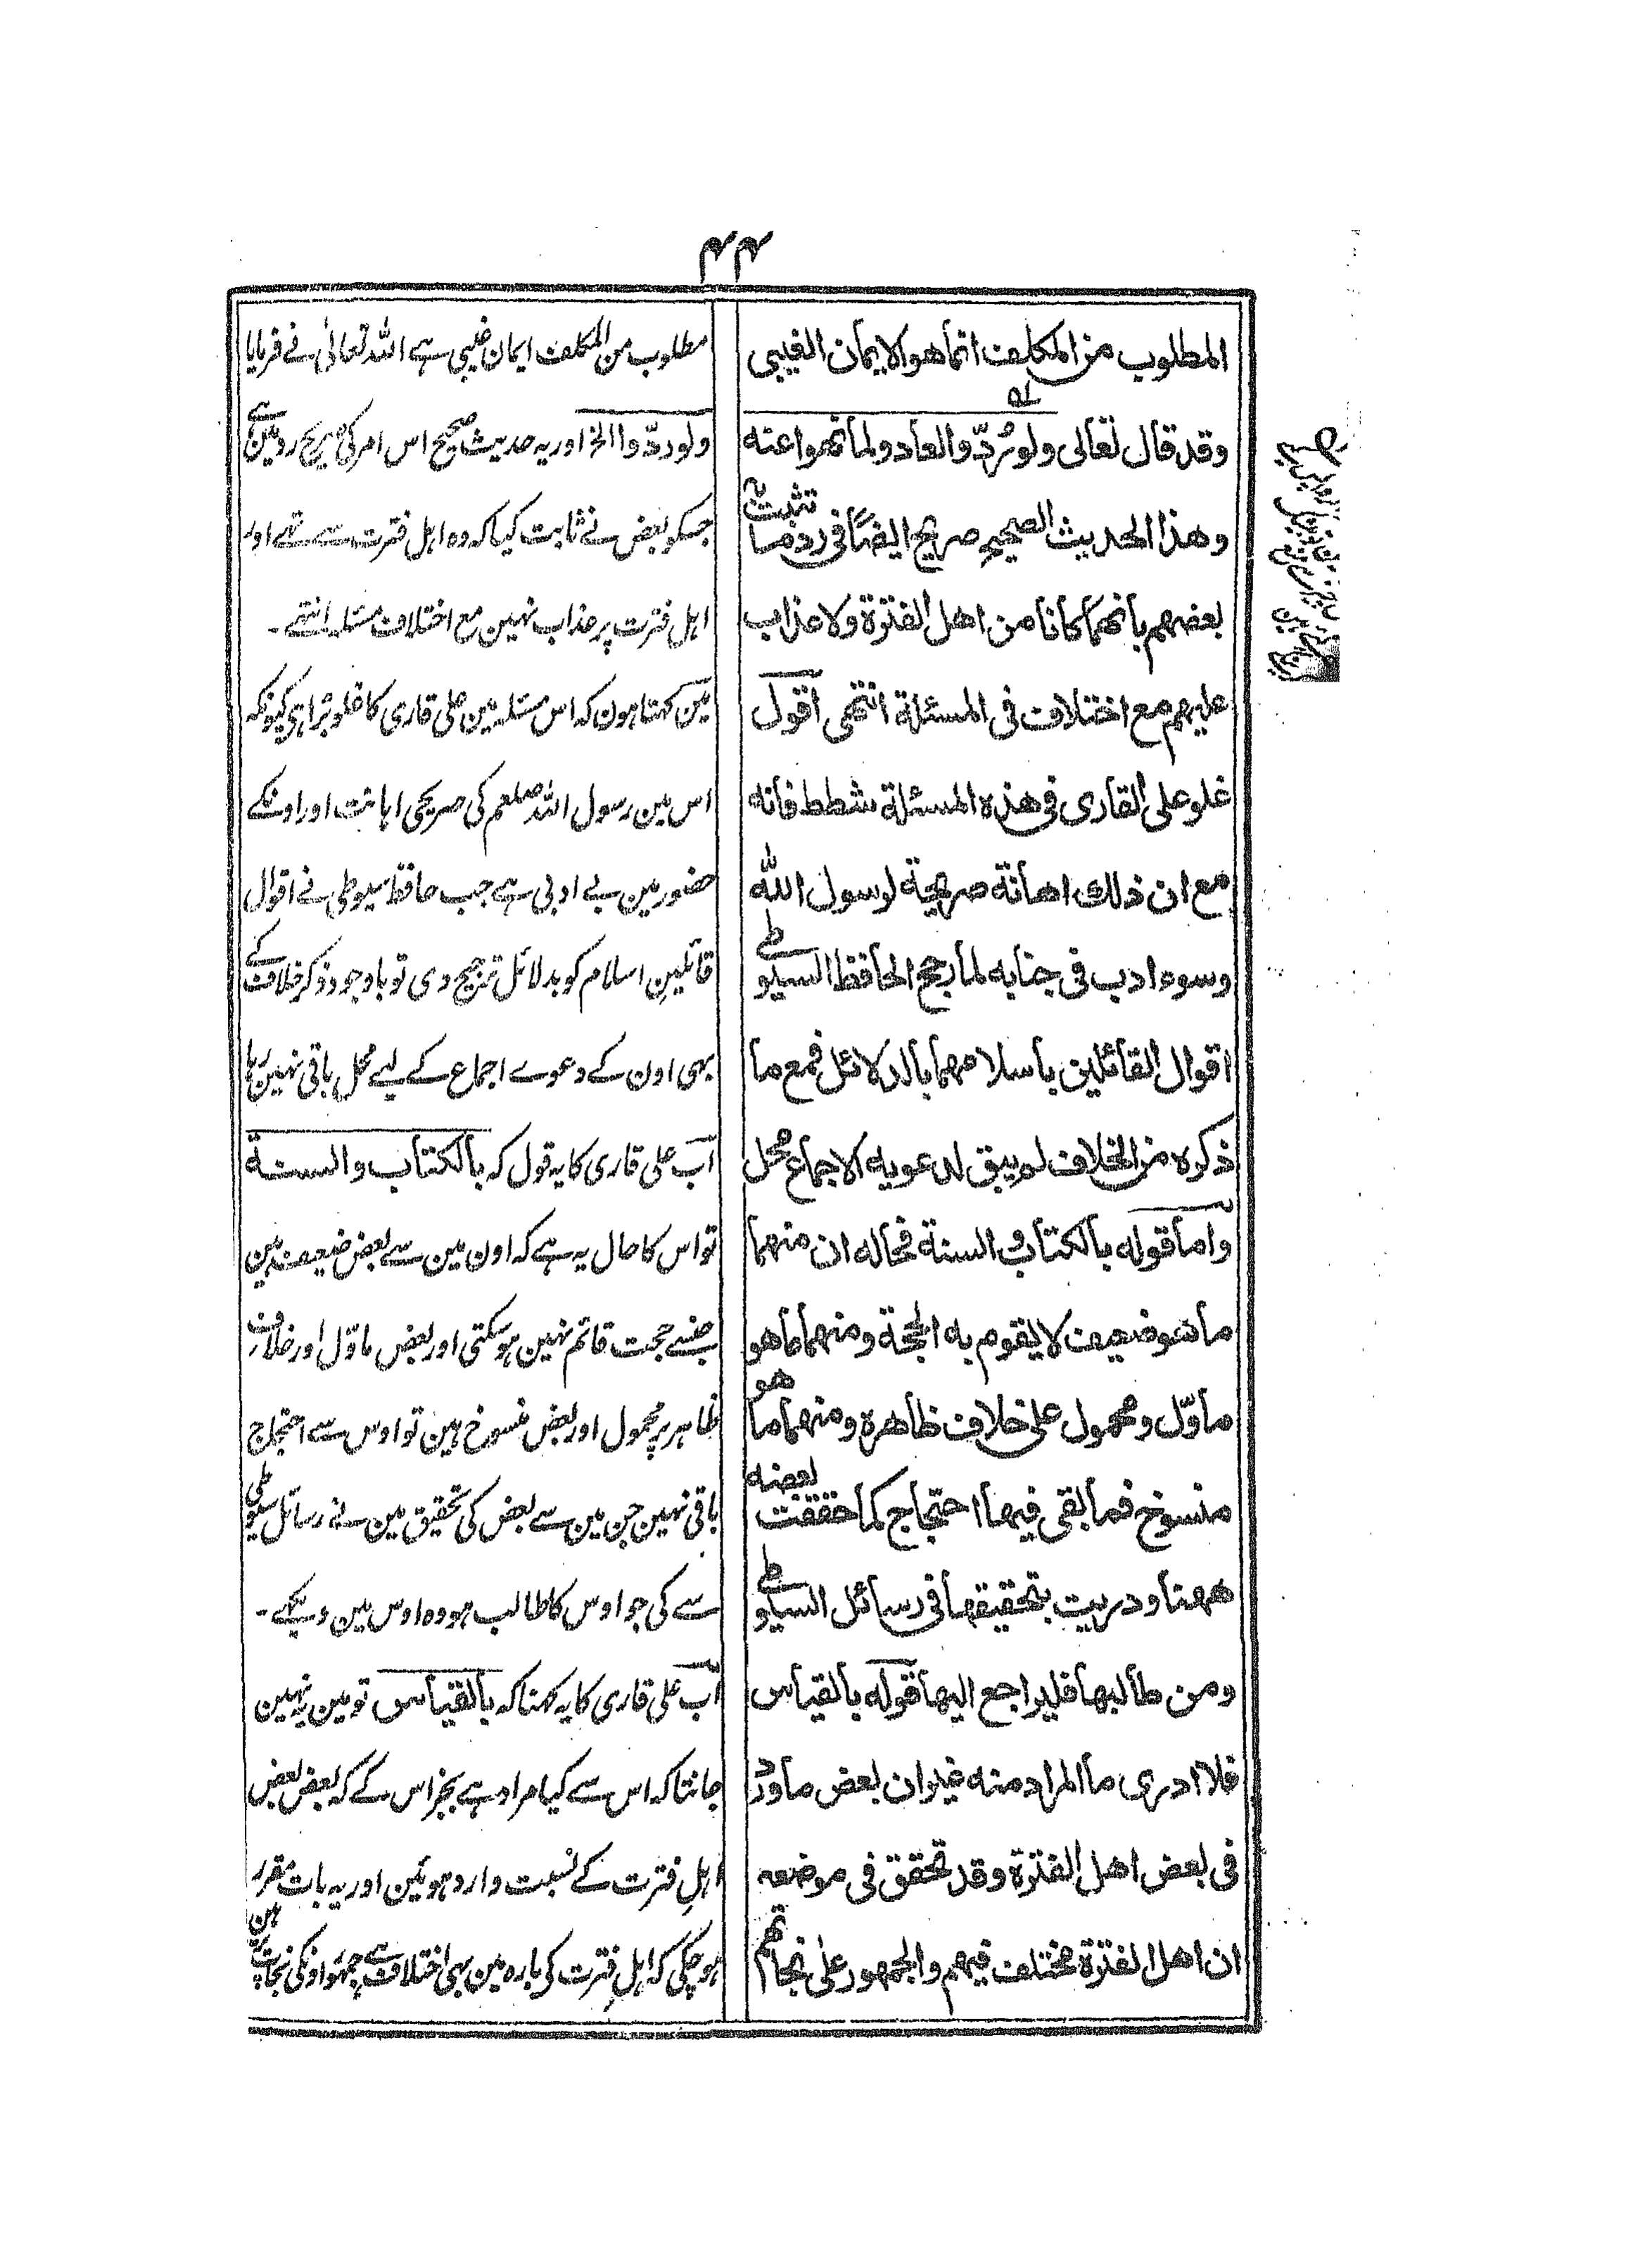 ۴۴
المطلوب من المكلف انما هو الايمان الغيبى
وقد قال تعالى ولو رُدّوا لعادو لما نهوا عنه
وهذا الحديث الصحيح صريح ايضًا فى رد ما تثبت به
بعضهم بانهما كانا من اهل الفترة ولا عذاب
عليهم مع اختلاف فى المسئلة انتهى اقول
غلو على القارى فى هذه المسئلة شطط فانه
مع ان ذلك اهانة صريحة لرسول الله
وسوء ادب فى جنابه لما رجح الحافظ السيوطى
اقوال القائلين باسلامهما بالدلائل فمع ما
ذكره من الخلاف لم يبق لدعويه الاجماع محل
واما قوله بالكتاب والسنة فحاله ان منهما
ما هو ضعيف لا يقوم به الحجة ومنهما ما هو
ماوّل ومحمول على خلاف ظاهره ومنهما ما هو
منسوخ فما بقى فيها احتجاج كما حققت بعضه
ههنا ودريت بتحقيقها فى رسائل السيوطى
ومن طالبها فليراجع اليها قوله بالقياس
فلا ادرى ما المراد منه غير ان بعض ما ورد
فى بعض اهل الفترة وقد تحقق فى موضعه
ان اهل الفترة مختلف فيهم والجمهور على نجاتهم
مطلوب من المكلف ايمان غيبى ہے اللہ تعالیٰ نے فرمایا
ولو ردّوا الخ اور یہ حدیث صحیح اس امر کی صریح رد مین ہے
جسکو بعض نے ثابت کیا کہ وہ اہل فترت سے تھے اور
اہل فترت پر عذاب نہین مع اختلاف مسئلہ انتہے۔
مین کہتا ہون کہ اس مسئلہ مین علی قاری کا غلو بڑا ہی کیونکہ
اس مین رسول اللہ صلعم کی صریحی اہانت اور اونکے
حضور مین بے ادبی ہے جب حافظ سیوطی نے اقوال
قائلینِ اسلام کو بدلائل ترجیح دی تو باوجود ذکر خلاف کے
بھی اون کے دعوے اجماع کے لیے محل باقی نہین رہا
اب علی قاری کا یہ قول کہ بالکتاب والسنة
تو اس کا حال یہ ہے کہ اون مین سے بعض ضعیف ہین
جنسے حجت قائم نہین ہو سکتی اور بعض ماوّل اور خلاف
ظاہر پر محمول اور بعض منسوخ ہین تو اوس سے احتجاج
باقی نہین جن مین سے بعض کی تحقیق مین نے رسائل سیوطی
سے کی جو اوس کا طالب ہو وہ اوس مین دیکھے۔
اب علی قاری کا یہ کہنا کہ بالقیاس تو مین یہ نہین
جانتا کہ اس سے کیا مراد ہے بجز اس کے کہ بعض بعض
اہلِ فترت کے نسبت وارد ہوئین اور یہ بات مقرر
ہو چکی کہ اہلِ فترت کو بارہ مین بھی اختلاف ہے جمہور اونکی نجات پر ہین